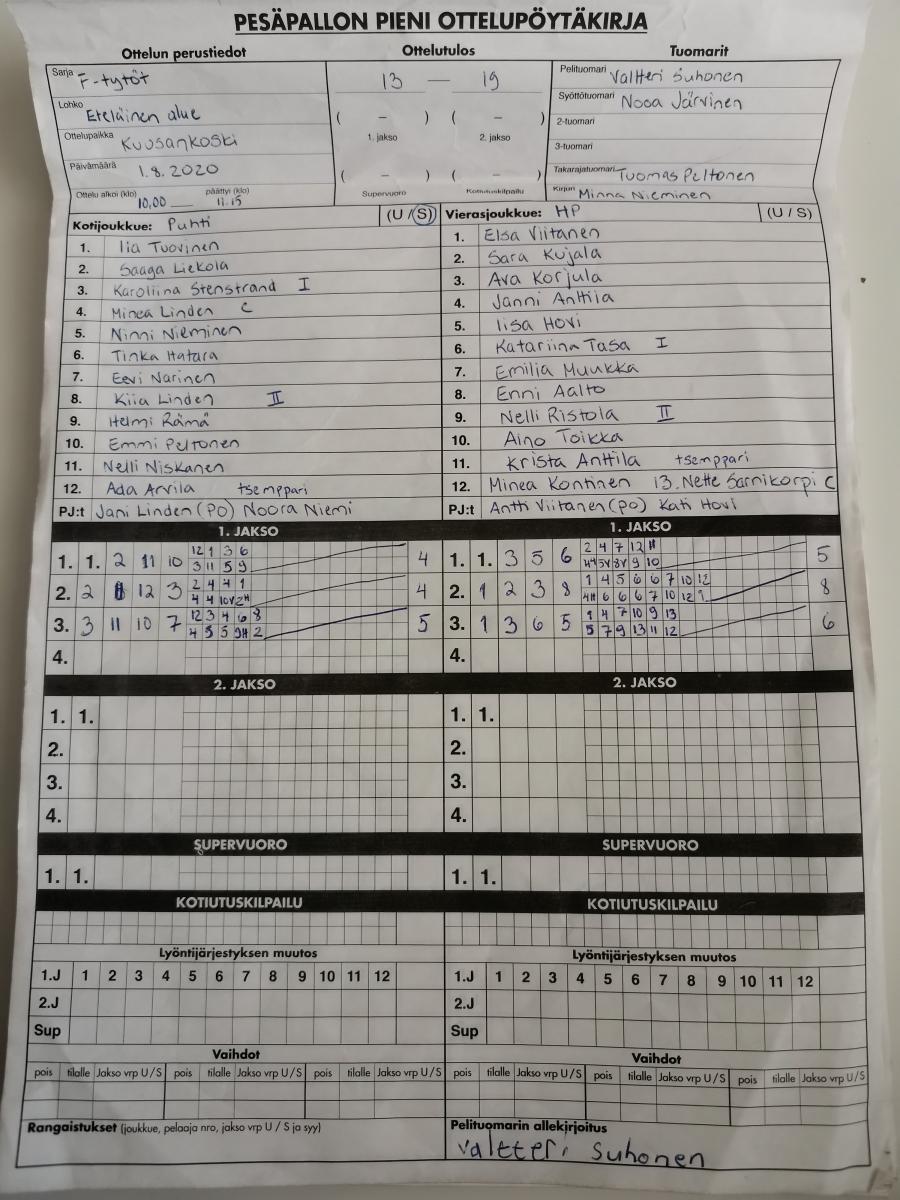 PESÄPALLON PIENI OTTELUPÖYTÄKIRJA
Ottelun perustiedot Ottelutulos Tuomarit
Sarja F-tytöt 13 — 19 Pelituomari Valtteri Suhonen
Lohko Eteläinen alue ( – ) ( – ) Syöttötuomari Nooa Järvinen
Ottelupaikka Kuusankoski 1. jakso 2. jakso 2-tuomari
3-tuomari
Päivämäärä 1.8.2020 ( – ) ( – ) Takarajatuomari Tuomas Peltonen
Ottelu alkoi (klo) 10,00 päättyi (klo) 11.15 Supervuoro Kotiutuskilpailu Kirjuri Minna Nieminen
Kotijoukkue: Puhti (U / S) Vierasjoukkue: HP (U / S)
1. Iia Tuovinen 1. Elsa Viitanen
2. Saaga Liekola 2. Sara Kujala
3. Karoliina Stenstrand I 3. Ava Korjula
4. Minea Linden C 4. Janni Anttila
5. Ninni Nieminen 5. Iisa Hovi
6. Tinka Hatara 6. Katariina Tasa I
7. Eevi Narinen 7. Emilia Muukka
8. Kiia Linden II 8. Enni Aalto
9. Helmi Rämä 9. Nelli Ristola II
10. Emmi Peltonen 10. Aino Toikka
11. Nelli Niskanen 11. Krista Anttila tsemppari
12. Ada Arvila tsemppari 12. Minea Kontinen 13. Nette Sarnikorpi C
PJ:t Jani Linden (PO) Noora Niemi PJ:t Antti Viitanen (PO) Kati Hovi
1. JAKSO 1. JAKSO
12 1 3 6 2 4 7 12 11
1. 1. 2 11 10 3 11 5 9 4 1. 1. 3 5 6 9 10 5
2 4 7 1 1 4 5 6 6 7 10 12
2. 2 12 3 4 4 4 2. 1 2 3 8 6 6 6 7 10 12 8
12 3 4 6 8 1 4 7 10 9 13
3. 3 11 10 7 4 5 5 2 5 3. 1 3 6 5 5 7 9 13 11 12 6
4. 4.
2. JAKSO 2. JAKSO
1. 1. 1. 1.
2. 2.
3. 3.
4. 4.
SUPERVUORO SUPERVUORO
1. 1. 1. 1.
KOTIUTUSKILPAILU KOTIUTUSKILPAILU
Lyöntijärjestyksen muutos Lyöntijärjestyksen muutos
1.J 1 2 3 4 5 6 7 8 9 10 11 12 1.J 1 2 3 4 5 6 7 8 9 10 11 12
2.J 2.J
Sup Sup
Vaihdot Vaihdot
pois tilalle Jakso vrp U / S pois tilalle Jakso vrp U / S pois tilalle Jakso vrp U / S pois tilalle Jakso vrp U / S pois tilalle Jakso vrp U / S pois tilalle Jakso vrp U / S
Rangaistukset (joukkue, pelaaja nro, jakso vrp U / S ja syy) Pelituomarin allekirjoitus
Valtteri Suhonen